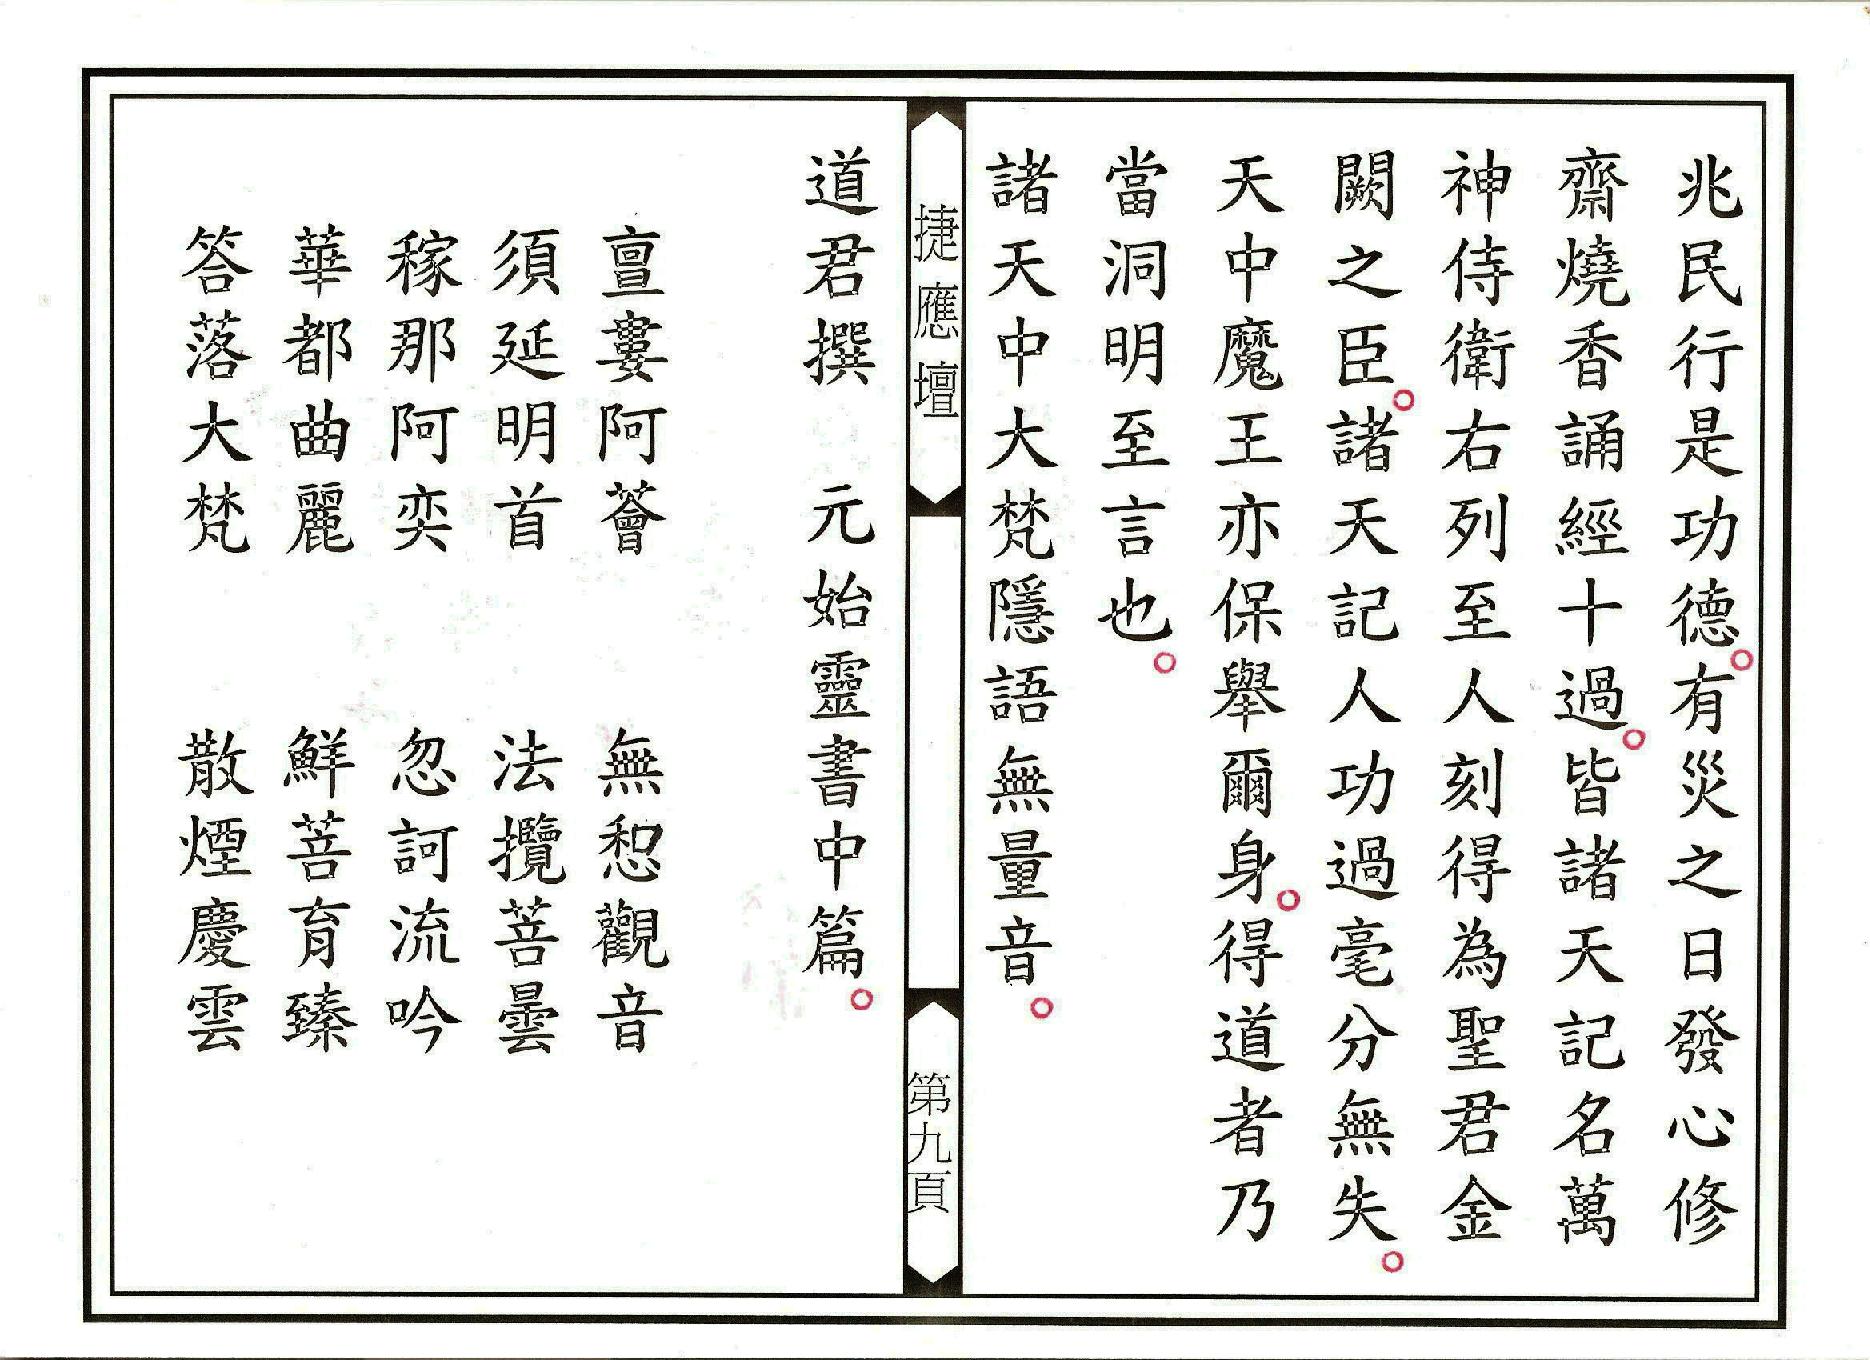 兆民行是功德。有災之日發心修
齋燒香誦經十過。皆諸天記名萬
神侍衛右列至人刻得為聖君金
闕之臣。諸天記人功過毫分無失。
天中魔王亦保舉爾身。得道者乃
當洞明至言也。
諸天中大梵隱語無量音。
捷應壇
第九頁
道君撰 元始靈書中篇。
亶婁阿薈 無惒觀音
須延明首 法攬菩曇
稼那阿奕 忽訶流吟
華都曲麗 鮮菩育臻
答落大梵 散煙慶雲